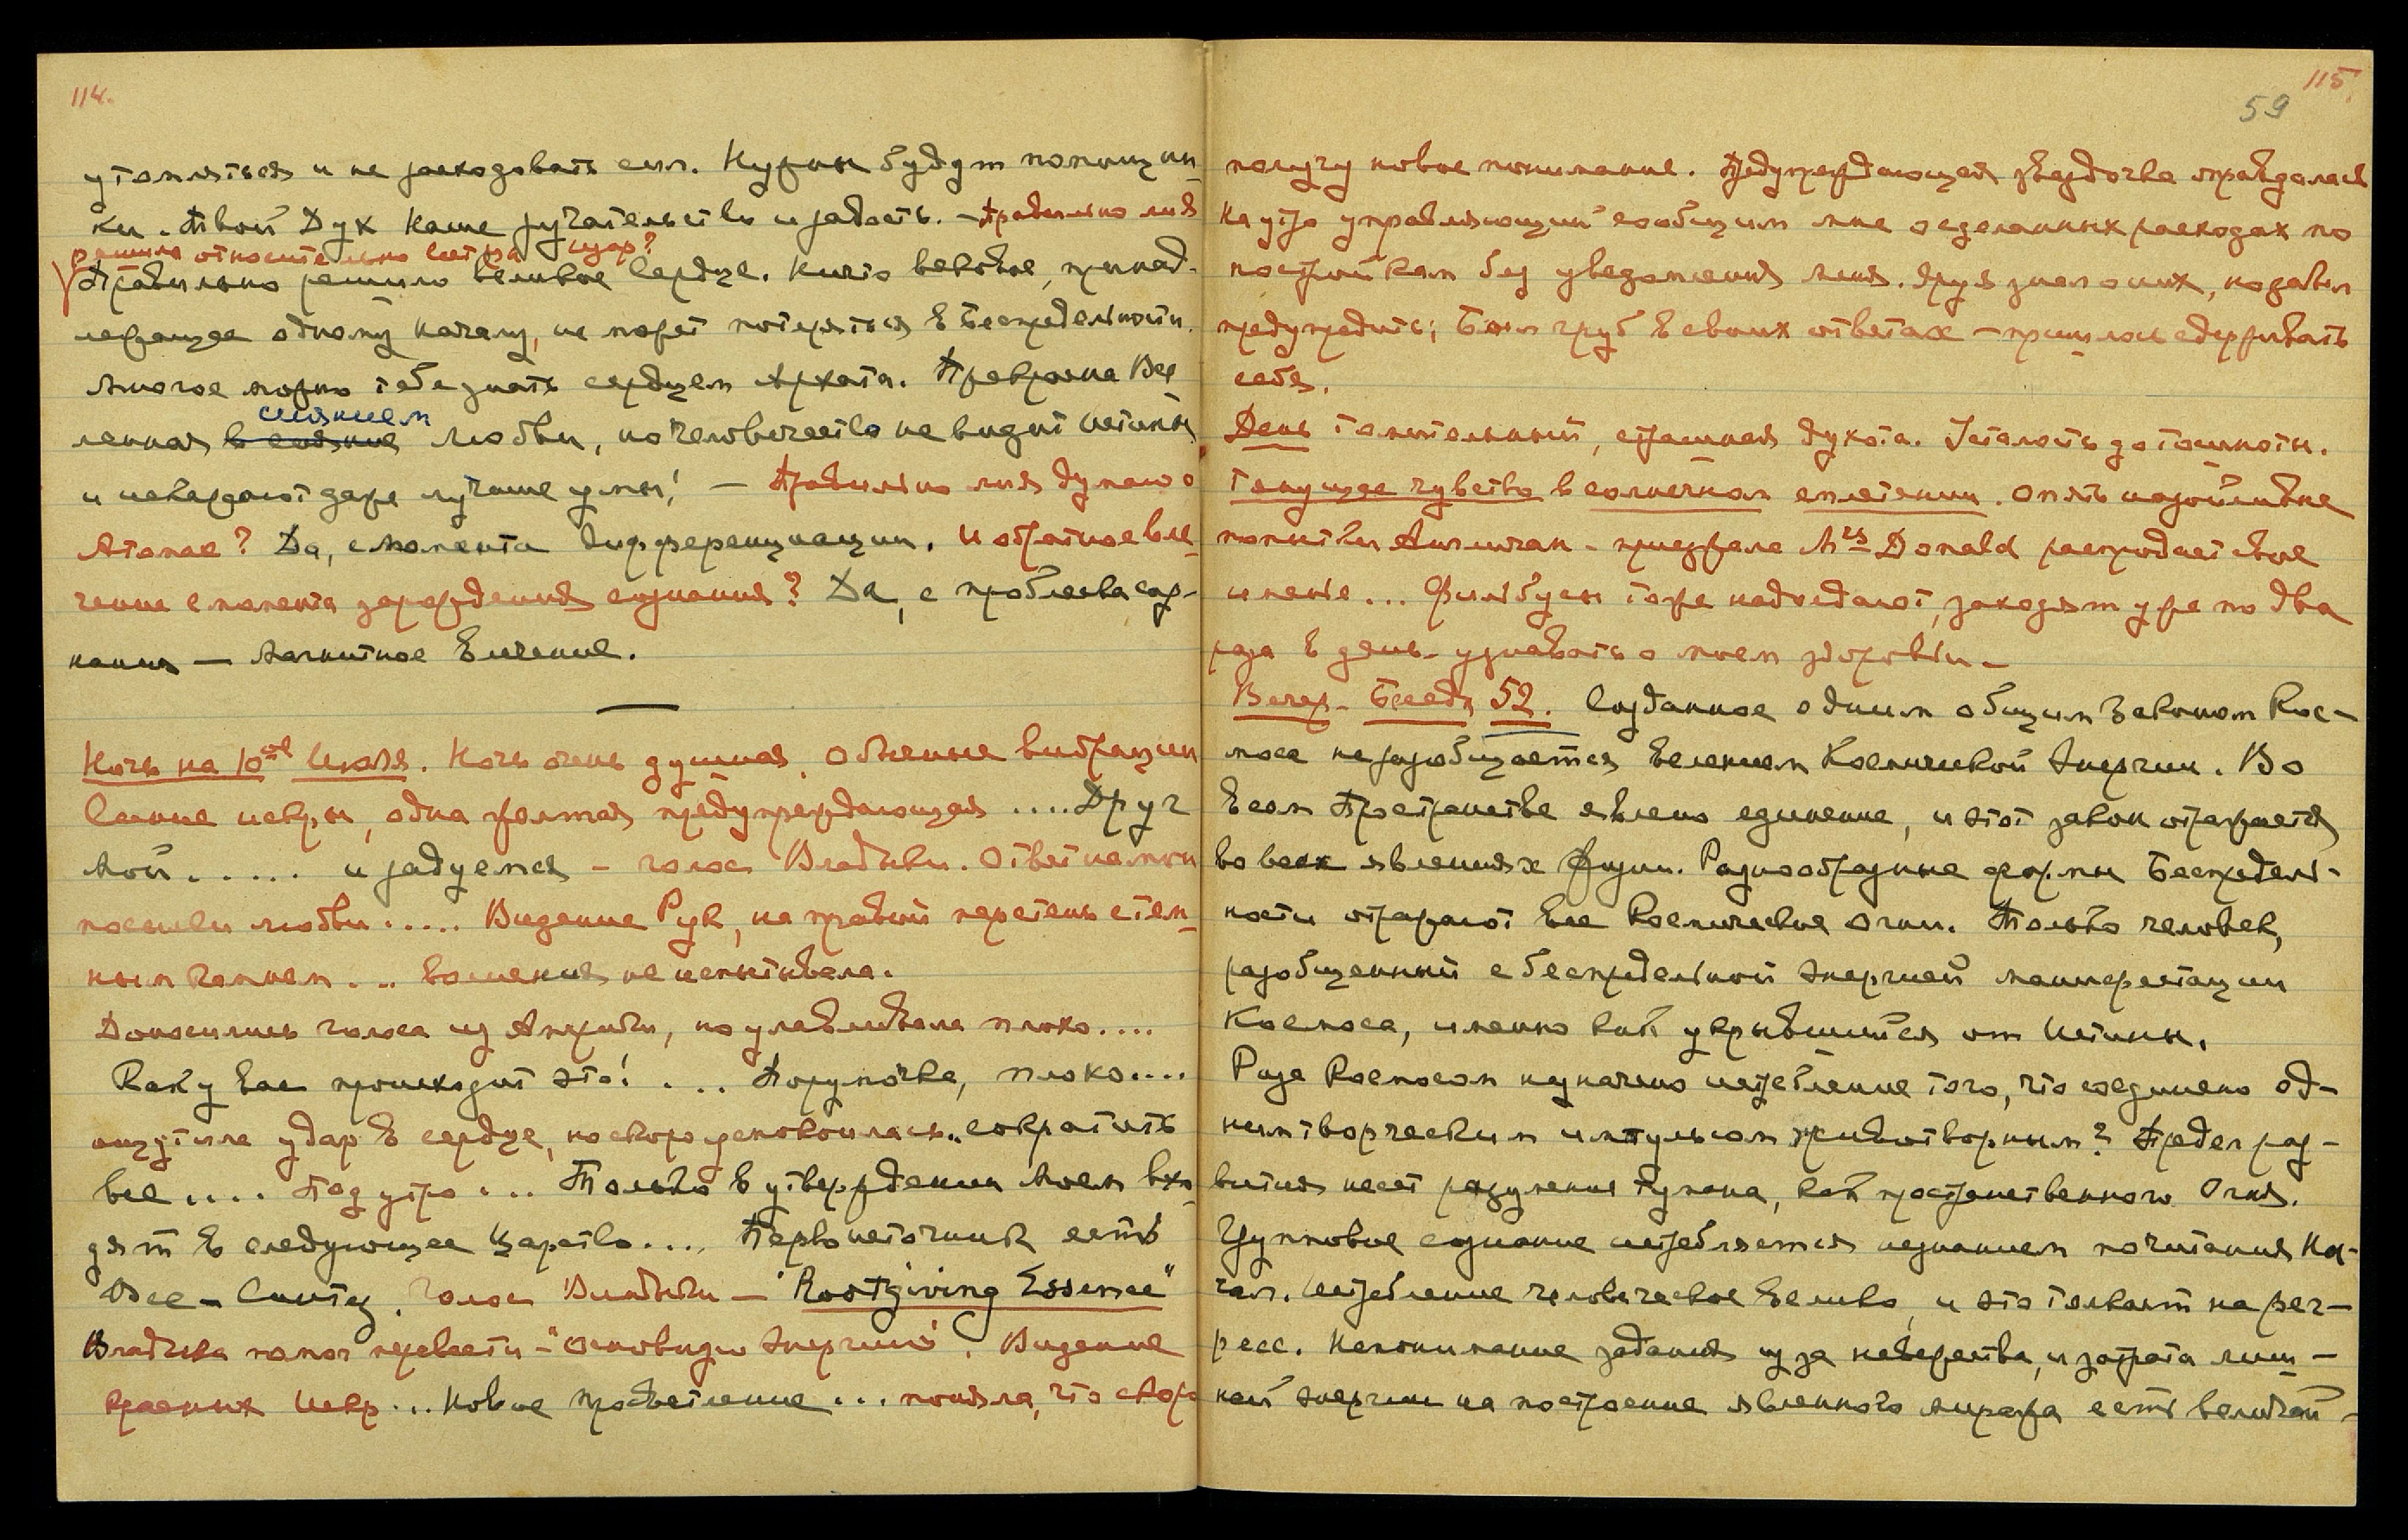 114.
утомляться и не расходовать сил. Нужны будут помощни-
ки. Твой Дух Наше ручательство и радость. – Правильно ли я
решила относительно
Правильно решило великое сердце. Ничто вековое, принад-
лежащее одному началу, не может потеряться в Беспредельности.
Многое можно тебе знать сердцем Архата. Прекрасна Все
сиянием
ленная в сиянии любви, но человечество не видит истины
и извергают даже лучшие умы! – Правильно ли я думаю о
Атоме? Да, с момента дифференциации. И обратное вле-
чение с момента зарождения сознания? Да, с проблеска соз-
нания – Магнитное влечение.
Ночь на 10ое Июля. Ночь очень душная. Обычные вибрации
Синие искры, одна желтая предупреждающая .... Друг
Мой..... и радуемся – голос Владыки. Ответ на мои
посылки любви ..... Видение Рук, на правой перстень с тем-
ным камнем ... волнения не испытывала.
Доносились голоса из Америки, но улавливала плохо....
Как у Вас происходит это! .... Порумочка, плохо....
ощутила удар в сердце, но скоро успокоилась.. сократить
все .... Под утро ... Только в утверждении Моем вхо-
дят в следующее царство .... Первоисточник есть
Все-Синтез. Голос Владыки – "Rootgiving Essence"
Владыка помог перевести – "Основидя Энергию". Видение
красных Искр ... Новое просветление ... поняла, что скоро
115.
59
получу новое понимание. Предупреждающая звездочка оправдалась
На утро управляющий сообщил мне о сделанных расходах по
постройкам без уведомления меня. Яруя знал о них, но забыл
предупредить; Был груб в своих ответах – пришлось сдерживать
себя.
День томительный, страшная духота. Усталость до тошноты.
Тянущее чувство в солнечном сплетении. Опять назойливые
попытки Англичан – приезжала Mrs Donald распродает свое
именье ... Филибусы тоже надоедают, заходят уже по два
раза в день – узнавать о моем здоровьи –
Вечер – Беседа 52. Созданное одним общим законом Кос-
моса не разобщается велением Космической Энергии. Во
всем Пространстве явлено единение, и этот закон отражается
во всех явлениях жизни. Разнообразные формы Беспредель-
ности отражают все Космические огни. Только человек,
разобщенный с беспредельной энергией манифестации
Космоса, именно как укрывшийся от Истины.
Разве Космосом назначено истребление того, что соединено од-
ним творческим импульсом животворным? Предел раз-
вития несет разумения Тумана, как пространственного Огня.
Групповое сознание истребляется незнанием почитания На-
чал. Истребление человеческое велико, и это толкает на рег-
ресс. Непонимание задания из за невежества, и затрата лиш-
ней энергии на построение явленного миража есть величай-